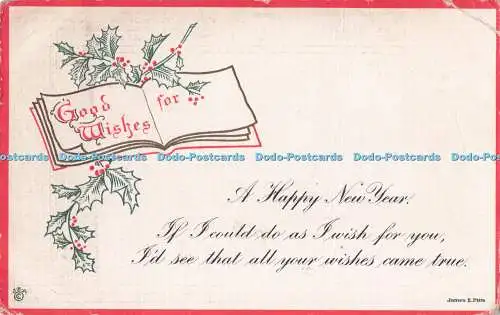 Good
Wishes
for
A Happy New Year.
If I could do as I wish for you,
I'd see that all your wishes came true.
James E. Pitts
Dodo-Postcards Dodo-Postcards Dodo-Postcards Dodo-Postcards Dodo-Postcards